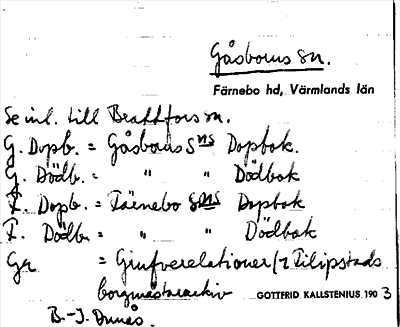 Gåsborns sn.
Färnebo hd, Värmlands län
Se inl. till Brattfors sn.
G. Dopb. = Gåsborns sns Dopbok.
G. Dödb. = " " Dödbok
F. Dopb. = Färnebo sns Dopbok
F. Dödb. = " " Dödbok
Gr = Grufverelationer i Filipstads
borgmästarearkiv
GOTTFRID KALLSTENIUS 1903
B.-J.